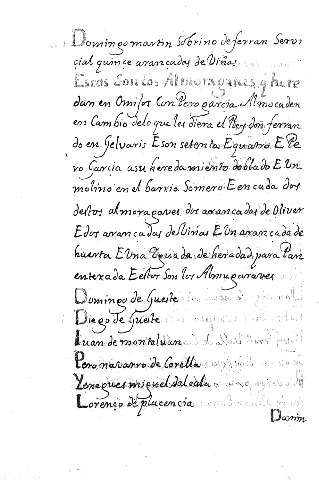 Domingo martin sobrino de ferran Servi
cial quince aranzadas de viñas
Estos son los Almoraganes q here
dan en Omiſos Con Pero garcia Almocaden
en Cambio de lo que les diera el Rey don ferran
do en Gelvaris E son setenta E quatro E Pe
ro Garcia a su heredamiento doblado E Un
molino en el barrio Somero E en cada dos
destos almoraganes dos aranzadas de Oliver
E dos aranzadas de viñas E Un aranzada de
huerta E Una de heredad para Pan
 E Estos son los Almugavares
Domingo de Gueste
Diego de Gueste
Iuan de montaluan
Pero navarro de Corella
Yenegues miguel dalcala
Lorenço de placencia
Domin